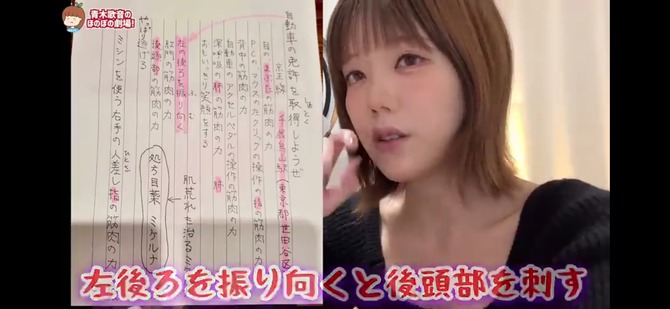 青木歌音の
ほのぼの劇場!
自動車の免許を取得しようぜ
しゅとく
京王線
(東京都世田谷区)
目の
の筋肉の力
PCのマウスの左クリックの操作の指の筋肉の力
背中の筋肉の力
自動車のアクセルペダルの操作の筋肉の力
深呼吸の肺の筋肉の力
肺
おもいっきり笑顔をする
左の後ろを振り向く
ふ む
肌荒れを治る
肛門の筋肉の力
後頭部の筋肉の力
処ち目薬 ミケルナ
やっぱり逃げる
ミシンを使う右手の人差し指の筋肉の力
左後ろを振り向くと後頭部を刺す